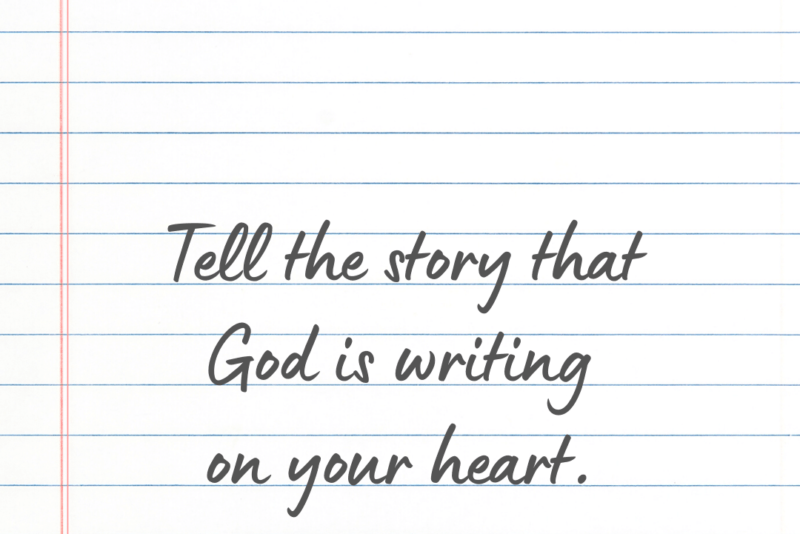 Tell the story that
God is writing
on your heart.